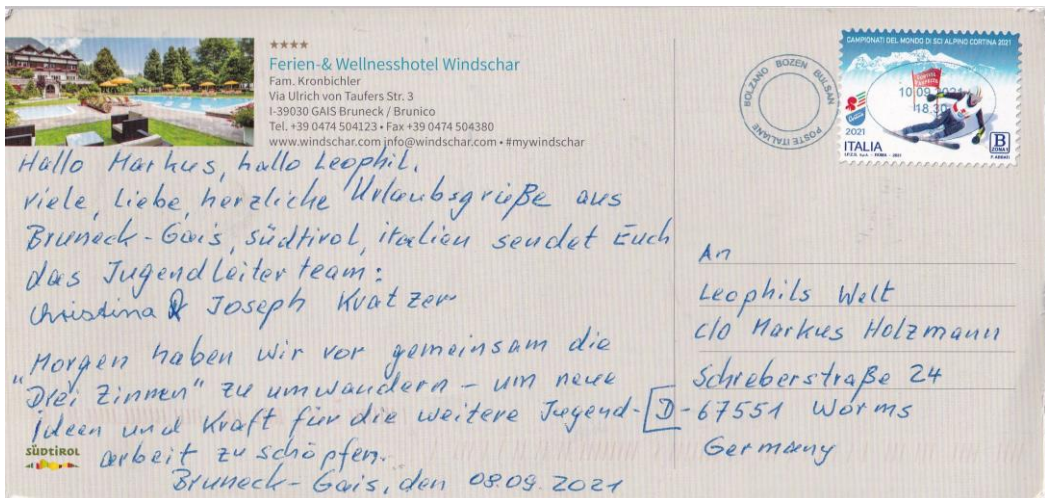 ★★★★
Ferien-& Wellnesshotel Windschar
Fam. Kronbichler
Via Ulrich von Taufers Str. 3
I-39030 GAIS Bruneck / Brunico
Tel. +39 0474 504123 • Fax +39 0474 504380
www.windschar.com info@windschar.com • #mywindschar
Hallo Markus, hallo Leophil,
viele, liebe, herzliche Urlaubsgrüße aus
Bruneck-Gais, Südtirol, italien sendet Euch
das Jugendleiterteam:
Christina & Joseph Kratzer
Morgen haben wir vor gemeinsam die
"Drei Zinnen" zu umwandern – um neue
Ideen und Kraft für die weitere Jugend-
arbeit zu schöpfen.
Bruneck-Gais, den 08.09.2021
SÜDTIROL
BOLZANO BOZEN BULSAN
POSTE ITALIANE
CAMPIONATI DEL MONDO DI SCI ALPINO CORTINA 2021
10 09 2021
18.30
2021
ITALIA
B
ZONA
An
Leophils Welt
c/o Markus Holzmann
Schreberstraße 24
D-67551 Worms
Germany